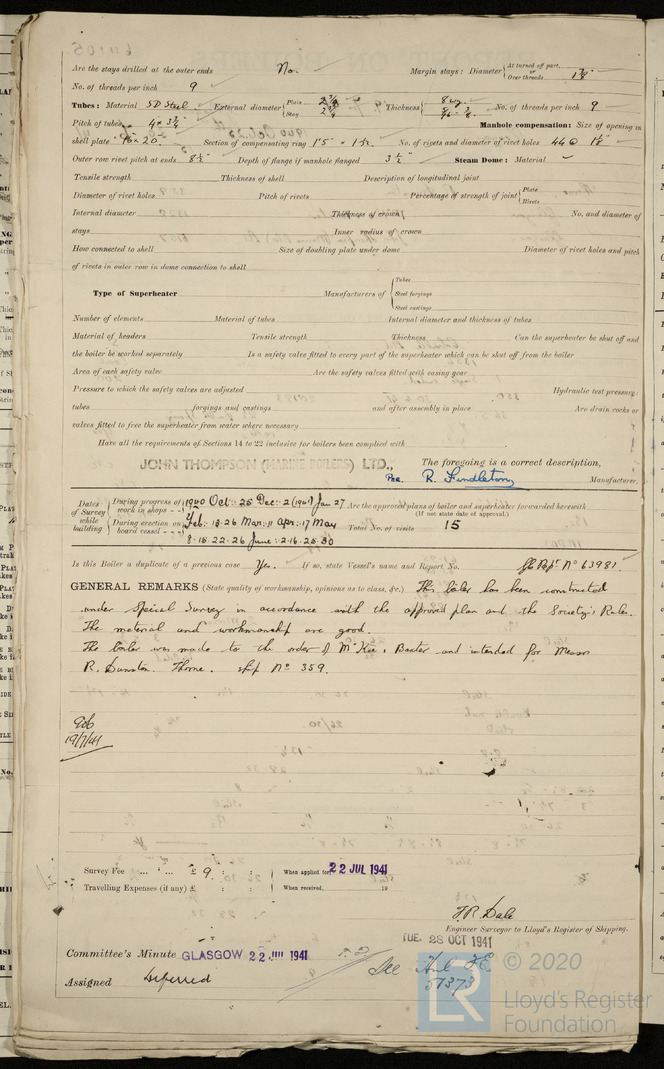 Are the stays drilled at the outer ends No. Margin stays: Diameter { At turned off part, or Over threads 1 3/4"
No. of threads per inch 9
Tubes: Material S D Steel External diameter { Plain Stay Thickness { 8 wg. No. of threads per inch 9
Pitch of tubes 4 × 3 3/4" Manhole compensation: Size of opening in
shell plate 16 × 20 Section of compensating ring No. of rivets and diameter of rivet holes 44 @
Outer row rivet pitch at ends 8 1/2" Depth of flange if manhole flanged 3 1/2" Steam Dome: Material
Tensile strength Thickness of shell Description of longitudinal joint
Diameter of rivet holes Pitch of rivets Percentage of strength of joint { Plate Rivets
Internal diameter Thickness of crown No. and diameter of
stays Inner radius of crown
How connected to shell Size of doubling plate under dome Diameter of rivet holes and pitch
of rivets in outer row in dome connection to shell
Type of Superheater Manufacturers of { Tubes Steel forgings Steel castings
Number of elements Material of tubes Internal diameter and thickness of tubes
Material of headers Tensile strength Thickness Can the superheater be shut off and
the boiler be worked separately Is a safety valve fitted to every part of the superheater which can be shut off from the boiler
Area of each safety valve Are the safety valves fitted with easing gear
Pressure to which the safety valves are adjusted Hydraulic test pressure:
tubes forgings and castings and after assembly in place Are drain cocks or
valves fitted to free the superheater from water where necessary
Have all the requirements of Sections 14 to 22 inclusive for boilers been complied with
JOHN THOMPSON (MARINE BOILERS) LTD., The foregoing is a correct description,
Per R. Pendleton Manufacturer.
Dates of Survey while building { During progress of work in shops - - 1940 Oct: 25 Dec: 2 (1941) Jan 27 Are the approved plans of boiler and superheater forwarded herewith
(If not state date of approval.)
During erection on board vessel - - - Feb: 13. 26 Mar: 11 Apr: 17 May Total No. of visits 15
8. 15. 22. 26 June: 2. 16. 25. 30
Is this Boiler a duplicate of a previous case Yes. If so, state Vessel's name and Report No. Rept No 63981.
GENERAL REMARKS (State quality of workmanship, opinions as to class, &c.) This boiler has been constructed
under Special Survey in accordance with the approved plan and the Society's Rules.
The material and workmanship are good.
The boiler was made to the order of McKie & Baxter and intended for Messrs
R. Dunston. Thorne. ship No 359.
19/7/41
Survey Fee ... ... £ 9 : : When applied for, 22 JUL 1941
Travelling Expenses (if any) £ : : When received, 19
J.R. Dale
Engineer Surveyor to Lloyd's Register of Shipping.
TUE. 28 OCT 1941
Committee's Minute GLASGOW 22 JUL 1941
See Hul F.E.
51373
Assigned Deferred
LR © 2020
Lloyd's Register
Foundation